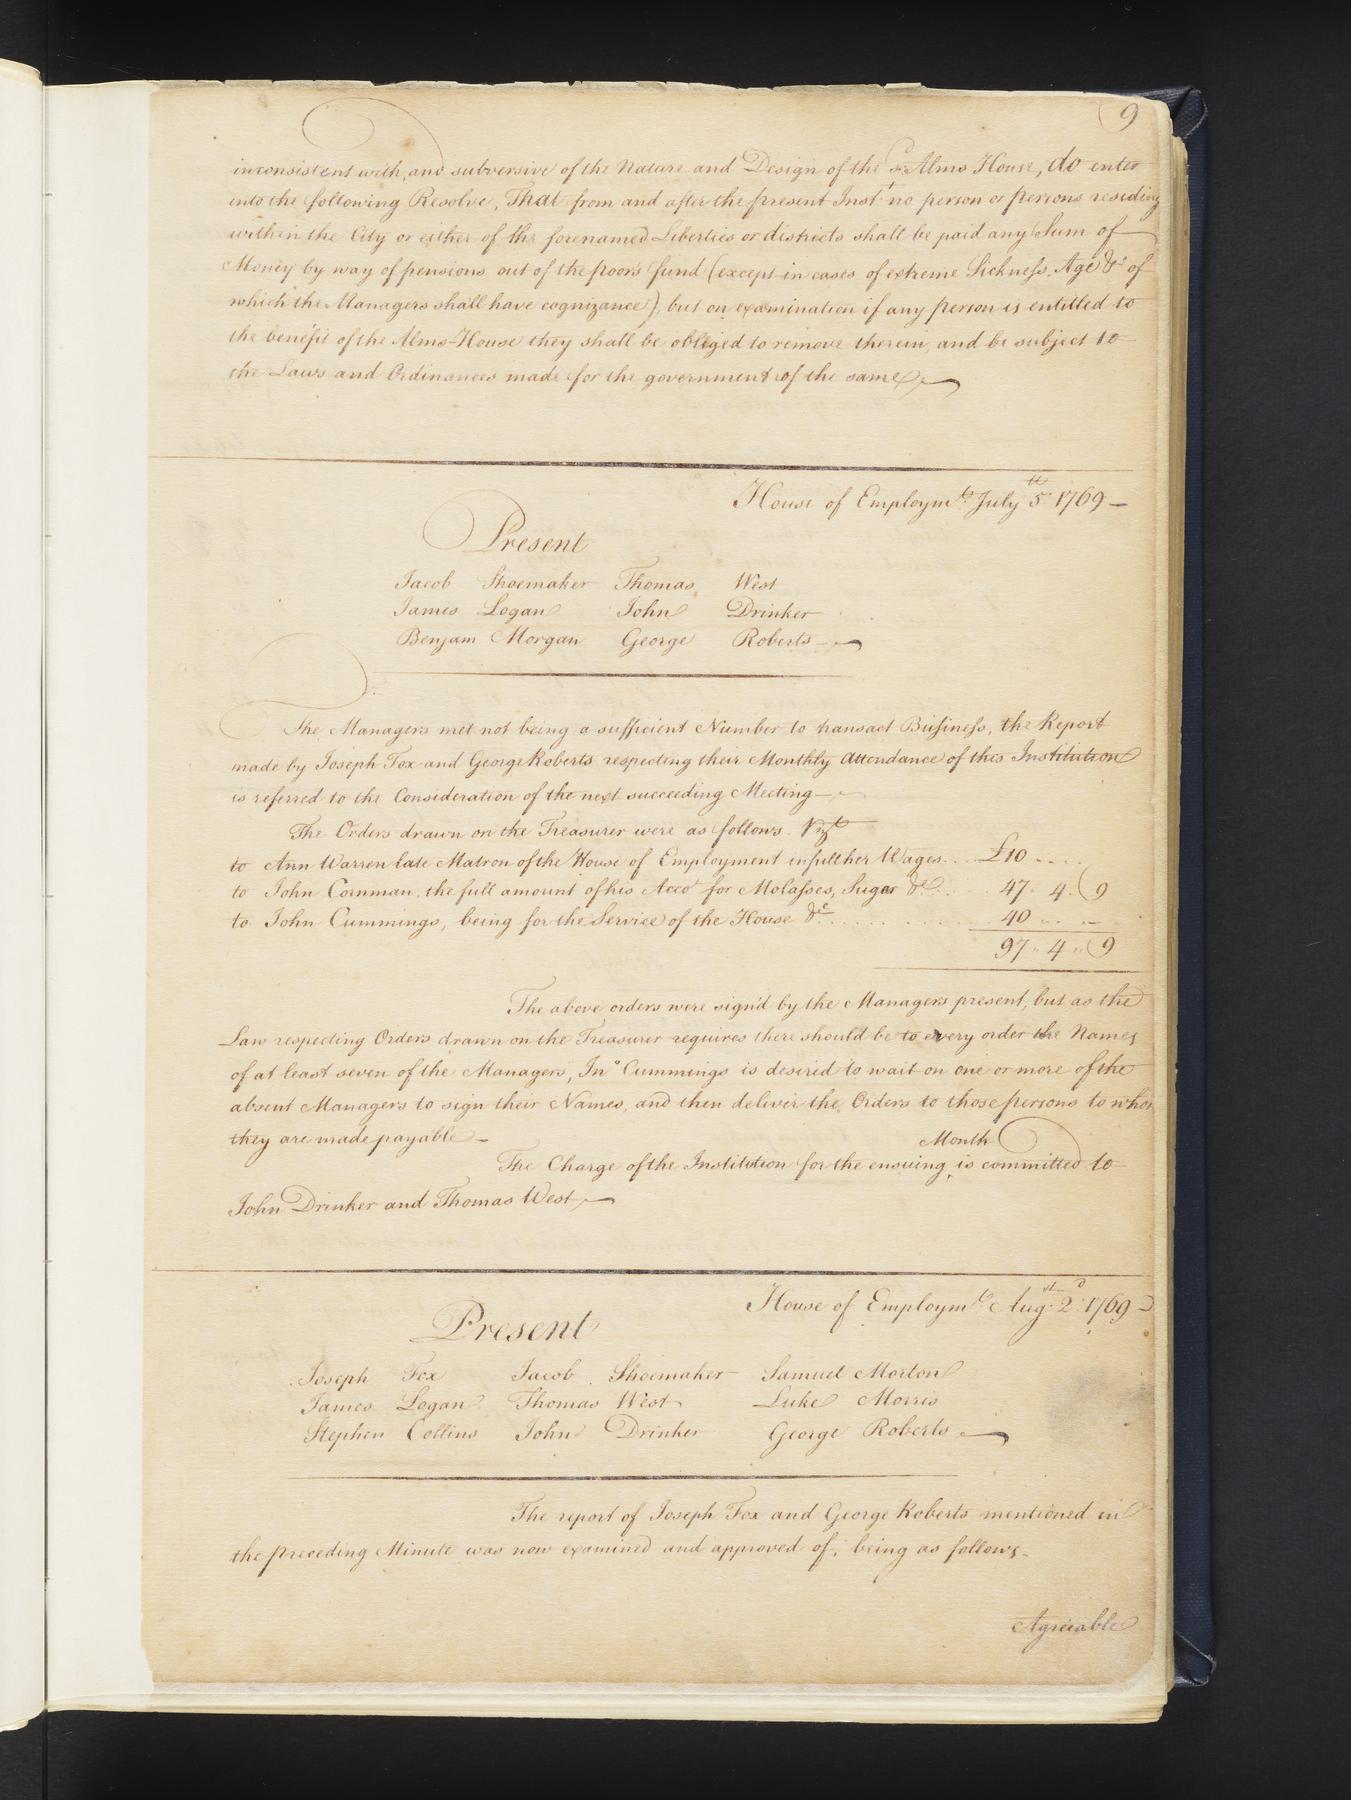 9
inconsistent with, and subversive of the Nature and Design of the Alms House, do enter
into the following Resolve, That from and after the present Inst.t no person or persons residing
within the City or either of the forenamed Liberties or districts shall be paid any Sum of
Money by way of pensions out of the poors fund (except in cases of extreme Sickness, Age &c of
which the Managers shall have cognizance), but on examination if any person is entitled to
the benefit of the Alms-House they shall be obliged to remove therein, and be subject to
the Laws and Ordinances made for the government of the same
House of Employmt. July 5th 1769 —
Present
Jacob Shoemaker Thomas West
James Logan John Drinker
Benjam Morgan George Roberts —
The Managers met not being a sufficient Number to transact Business, the Report
made by Joseph Fox and George Roberts respecting their Monthly Attendance of this Institution
is referred to the Consideration of the next succeeding Meeting —
The Orders drawn on the Treasurer were as follows. Vizt
to Ann Warren late Matron of the House of Employment in full her Wages .... £10 ....
to John Cornman, the full amount of his Acco.t for Molasses, Sugar &c ..... 47. 4. 9
to John Cummings, being for the Service of the House &c .......... 40 .. .. —
97 .. 4 .. 9
The above orders were sign'd by the Managers present, but as the
Law respecting Orders drawn on the Treasurer requires there should be to every order the Names
of at least seven of the Managers, Jno Cummings is desired to wait on one or more of the
absent Managers to sign their Names, and then deliver the Orders to those persons to whom
they are made payable —
Month
The Charge of the Institution for the ensuing ‸ is committed to
John Drinker and Thomas West —
House of Employmt. Augst. 2d 1769
Present
Joseph Fox Jacob Shoemaker Samuel Morton
James Logan Thomas West Luke Morris
Stephen Collins John Drinker George Roberts —
The report of Joseph Fox and George Roberts mentioned in
the preceding Minute was now examined and approved of, being as follows —
Agreeable